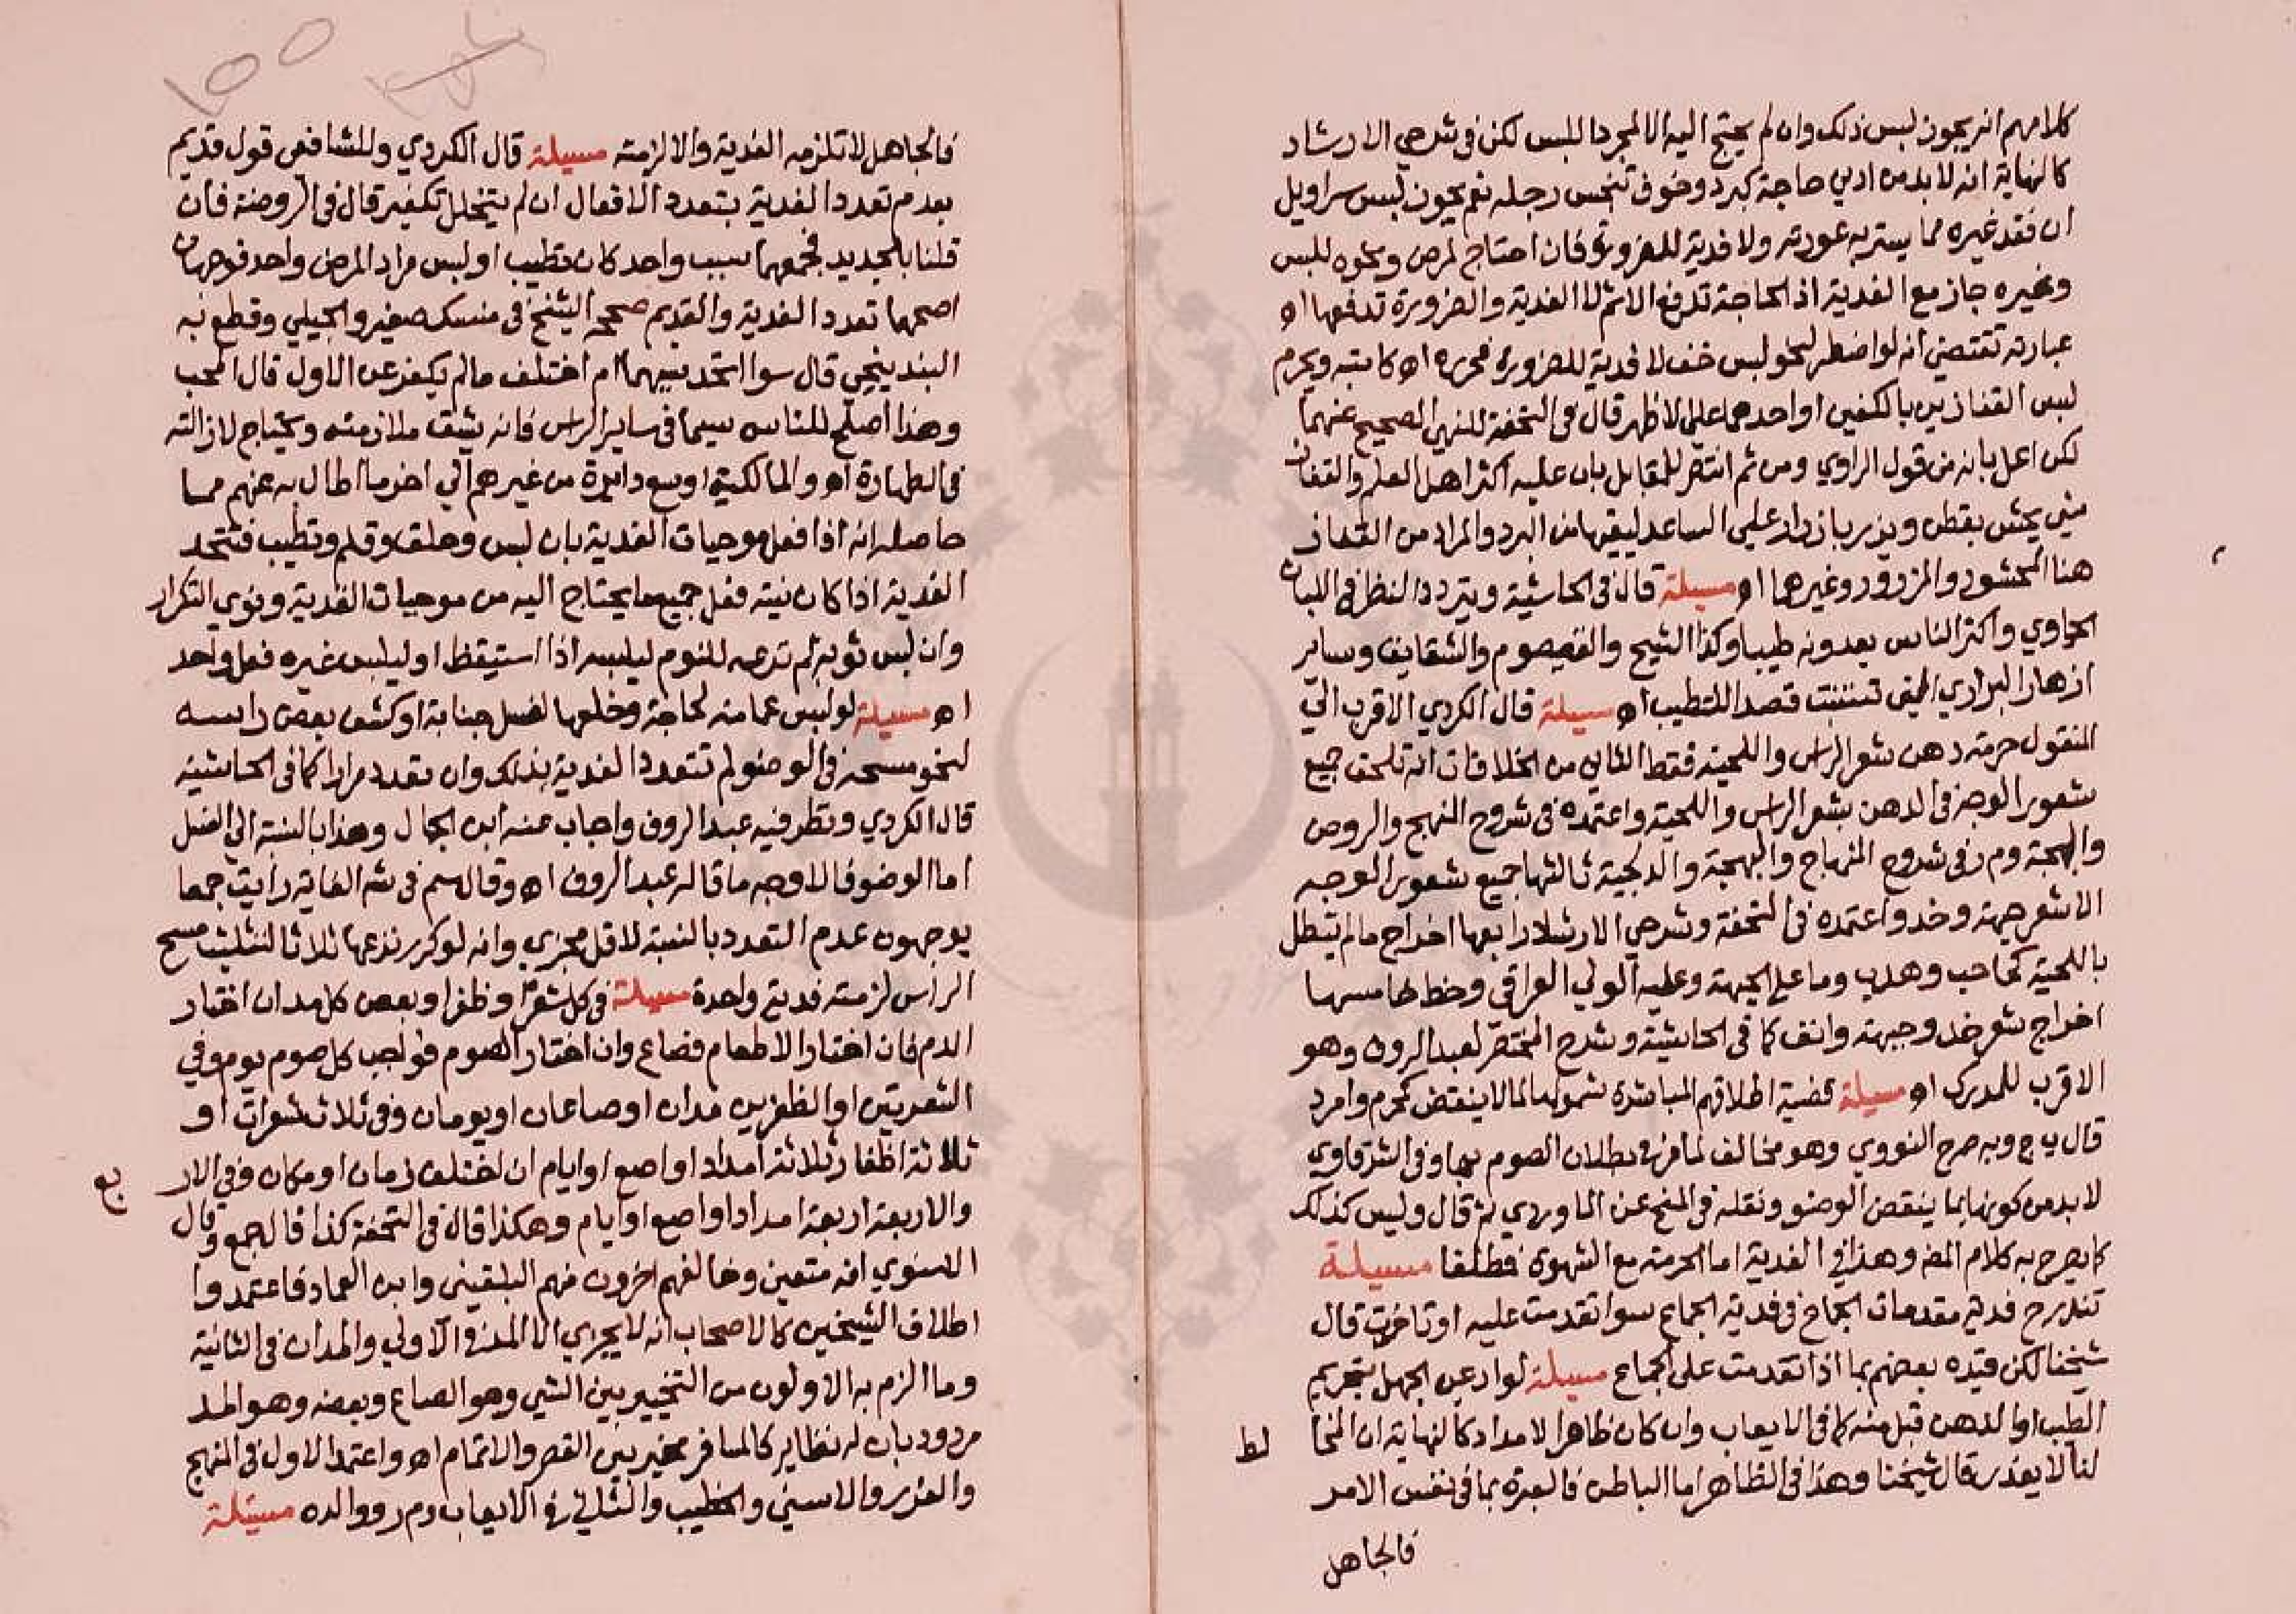 كلامهم انه يجوز لبس ذلك وان لم يحتج اليه الا لمجرد اللبس لكن في شرحي الارشاد
كالنهاية انه لا بد من ادني حاجة كبرد وخوف تنجس رجله نعم يجوز لبس سراويل
ان فقد غيره مما يستر به عورته ولا فدية للضرورة فان احتاج لمرض ونحوه للبس
وغيره جاز مع الفدية اذ الحاجة تدفع الاثم لا الفدية والضرورة تدفعها اه
عبارته تقتضي انه لو اضطر لنحو لبس خف لا فدية للضرورة فحرره اه كاتبه ويحرم
لبس القفازين بالكفين او احدهما على الاظهر قال في التحفة للنهي الصحيح عنهما
لكن اعل بانه من قول الراوي ومن ثم انتصر للمقابل بان عليه اكثر اهل العلم والقفاز
شي يحشى بقطن ويزر بازرار على الساعد ليقيها من البرد والمراد من القفاز
هنا المحشو والمزرور وغيرهما اه مسيلة قال في الحاشية ويتردد النظر في اللبان
الجاوي واكثر الناس يعدونه طيبا وكذا الشيح والقيصوم والشقايق وساير
ازهار البراري التي تستنبت قصدا للتطيب اه مسيلة قال الكردي الاقرب الي
المنقول حرمة دهن شعر الراس واللحية فقط الثاني من الخلافات انه تلحق جميع
شعور الوجه في الدهن بشعر الراس واللحية واعتمده في شروح المنهج والروض
والبهجة وم ر في شروح المنهاج والبهجة والدلجية ثالثها جميع شعور الوجه
الا شعر جبهة وخد واعتمده في التحفة وشرحي الارشاد رابعها اخراج ما لم يتصل
باللحية كحاجب وهدب وما على الجبهة وعليه الولي العراقي وخط خامسها
اخراج شعر خد وجبهة وانف كما في الحاشية وشرح المختصر لعبد الروف وهو
الاقرب للمدرك اه مسيلة قضية اطلاقهم المباشرة شمولها لما لا ينقض كمحرم وامرد
قال ب ج وبه صرح النووي وهو مخالف لما في بطلان الصوم بها وفي الشرقاوي
لا بد من كونها بما ينقض الوضو ونقله في المنح عن الماوردي ثم قال وليس كذلك
كما يصرح به كلام المص وهذا في الفدية اما الحرمة مع الشهوة فمطلقا مسيلة
تندرج فدية مقدمات الجماع في فدية الجماع سوا تقدمت عليه او تاخرت قال
شيخنا لكن قيده بعضهم بما اذا تقدمت على الجماع مسيلة لو ادعى الجهل بتحريم
الطيب او الدهن قبل منه كما في الايعاب وان كان ظاهر الامداد كالنهاية ان المخا
لط
لنا لا يعذر قال شيخنا وهذا في الظاهر اما الباطن فالعبرة بما في نفس الامر
فالجاهل
فالجاهل لا تلزمه الفدية والا لزمته مسيلة قال الكردي وللشافعي قول قديم
بعدم تعدد الفدية بتعدد الافعال ان لم يتخلل تكفير قال في الروضة فان
قلنا بالجديد فجمعهما سبب واحد كان تطيب او لبس مرارا لمرض واحد فوجهان
اصحهما تعدد الفدية والقديم صححه الشيخ في منسك صغير والجيلي وقطع به
البندينجي قال سوا اتحد سببهما ام اختلف ما لم يكفر عن الاول قال المحب
وهذا اصلح للناس سيما في ساير الراس فانه يشق ملازمته ويحتاج لازالته
في الطهارة اه والمالكية اوسع دايرة من غيرهم الي اخر ما اطال به عنهم مما
حاصله انه اذا فعل موجبات الفدية بان لبس وحلق وقلم وتطيب فتتحد
الفدية اذا كان نيته فعل جميع ما يحتاج اليه من موجبات الفدية ونوي التكرار
وان لبس ثوبه ثم نزعه للنوم ليلبسه اذا استيقظ او ليلبس غيره فعل واحد
اه مسيلة لو لبس عمامته لحاجة وخلعها لغسل جنابة او كشف بعض راسه
لنحو مسحه في الوضو لم تتعدد الفدية بذلك وان تعدد مرارا كما في الحاشية
قال الكردي ونظر فيه عبد الروف واجاب عنه ابن الجمال وهذا بالنسبة الي الغسل
اما الوضو فالاوجه ما قاله عبد الروف اه وقال سم في شرح الغاية رأيت جمعا
يوجهون عدم التعدد بالنسبة لاقل مجزي وانه لو كرر نزعها ثلاثا لتثليث مسح
الرأس لزمته فدية واحدة مسيلة في كل شعرة او ظفر او بعض كل مد ان اختار
الدم فان اختار الاطعام فصاع وان اختار الصوم فواجب كل صوم يوم وفي
الشعرتين او الظفرين مدان او صاعان او يومان وفي ثلاث شعرات او
ثلاثة اظفار ثلاثة امداد او اصع او ايام ان اختلف زمان او مكان وفي الار
بع
والاربعة اربعة امداد او اصع او ايام وهكذا قال في التحفة كذا قاله جمع وقال
الاسنوي انه متعين وخالفهم اخرون منهم البلقيني وابن العماد فاعتمدوا
اطلاق الشيخين كالاصحاب انه لا يجزي الا المد في الاولي والمدان في الثانية
وما الزم به الاولون من التخيير بين الشي وهو الصاع وبعضه وهو المد
مردود بان له نظاير كالمسافر مخير بين القصر والاتمام اه واعتمد الاول في المنهج
والغرر والاسني والخطيب والشلي في الايعاب وم ر ووالده مسئلة